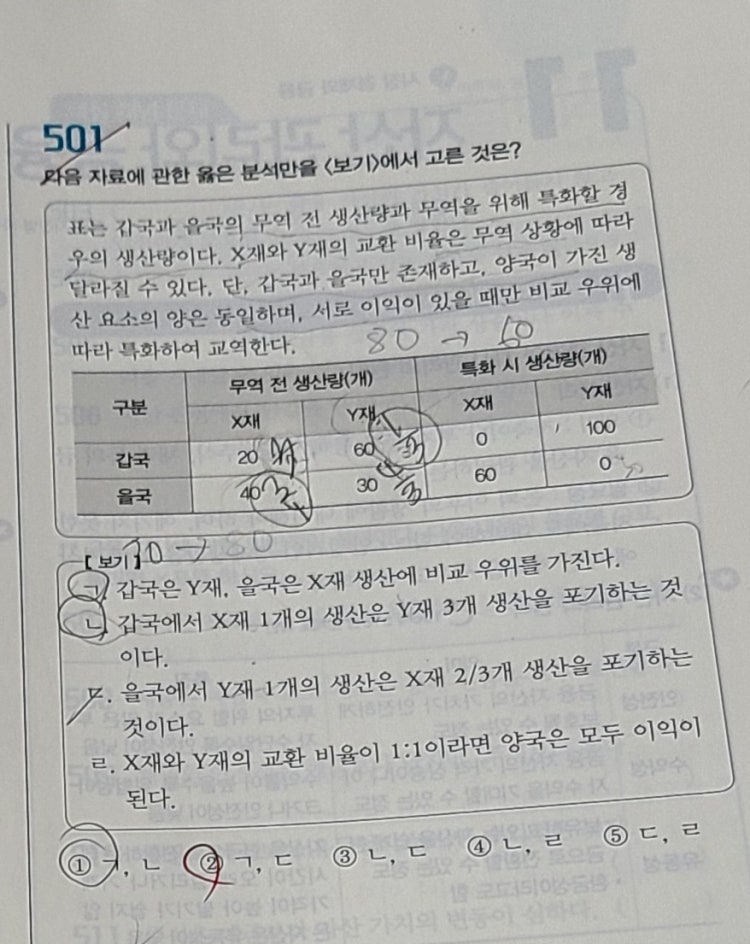 501
다음 자료에 관한 옳은 분석만을 〈보기〉에서 고른 것은?
표는 갑국과 을국의 무역 전 생산량과 무역을 위해 특화할 경
우의 생산량이다. X재와 Y재의 교환 비율은 무역 상황에 따라
달라질 수 있다. 단, 갑국과 을국만 존재하고, 양국이 가진 생
산 요소의 양은 동일하며, 서로 이익이 있을 때만 비교 우위에
따라 특화하여 교역한다.
80 → 60
구분 무역 전 생산량(개) 특화 시 생산량(개)
X재 Y재 X재 Y재
갑국 20 60 0 100
을국 40 30 60 0
→ 80
[보기]
ㄱ. 갑국은 Y재, 을국은 X재 생산에 비교 우위를 가진다.
ㄴ. 갑국에서 X재 1개의 생산은 Y재 3개 생산을 포기하는 것
이다.
ㄷ. 을국에서 Y재 1개의 생산은 X재 2/3개 생산을 포기하는
것이다.
ㄹ. X재와 Y재의 교환 비율이 1:1이라면 양국은 모두 이익이
된다.
① ㄱ, ㄴ ② ㄱ, ㄷ ③ ㄴ, ㄷ ④ ㄴ, ㄹ ⑤ ㄷ, ㄹ